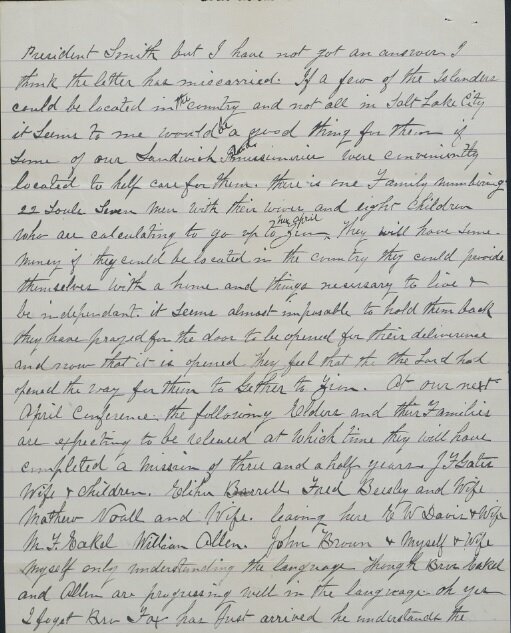 President Smith but I have not got an answer I
think the letter has miscarried. If a few of the Islanders
could be located in the country and not all in Salt Lake City
it seems to me would be a good thing for them if
some of our Sandwich Island missionaries were conveniently
located to help care for them. there is one Family numbering
22 Souls Seven men with their wives and eight children
who are calculating to go up to Zion next April They will have some
money if they could be located in the country they could provide
themselves with a home and things necessary to live &
be independant. it seems almost imposable to hold them back
they have prayed for the door to be opened for their deliverence
and now that it is opened they feel that the the Lord had
opened the way for them to Gether to Zion. At our next
April Conference. the following Elders and their Families
are expecting to be released at which time they will have
completed a mission of three and a half years J F Gates
Wife & children. Elihu Barrell Fred Beesley and Wife
Mathew Noall and Wife. leaving here E W Davis & Wife
M. F. Eakel William Allen. John Brown & Myself & Wife
Myself only understanding the language though Bros Eakel
and Allen are progressing well in the language oh yes
I forget Bro Fox has just arrived he understands the